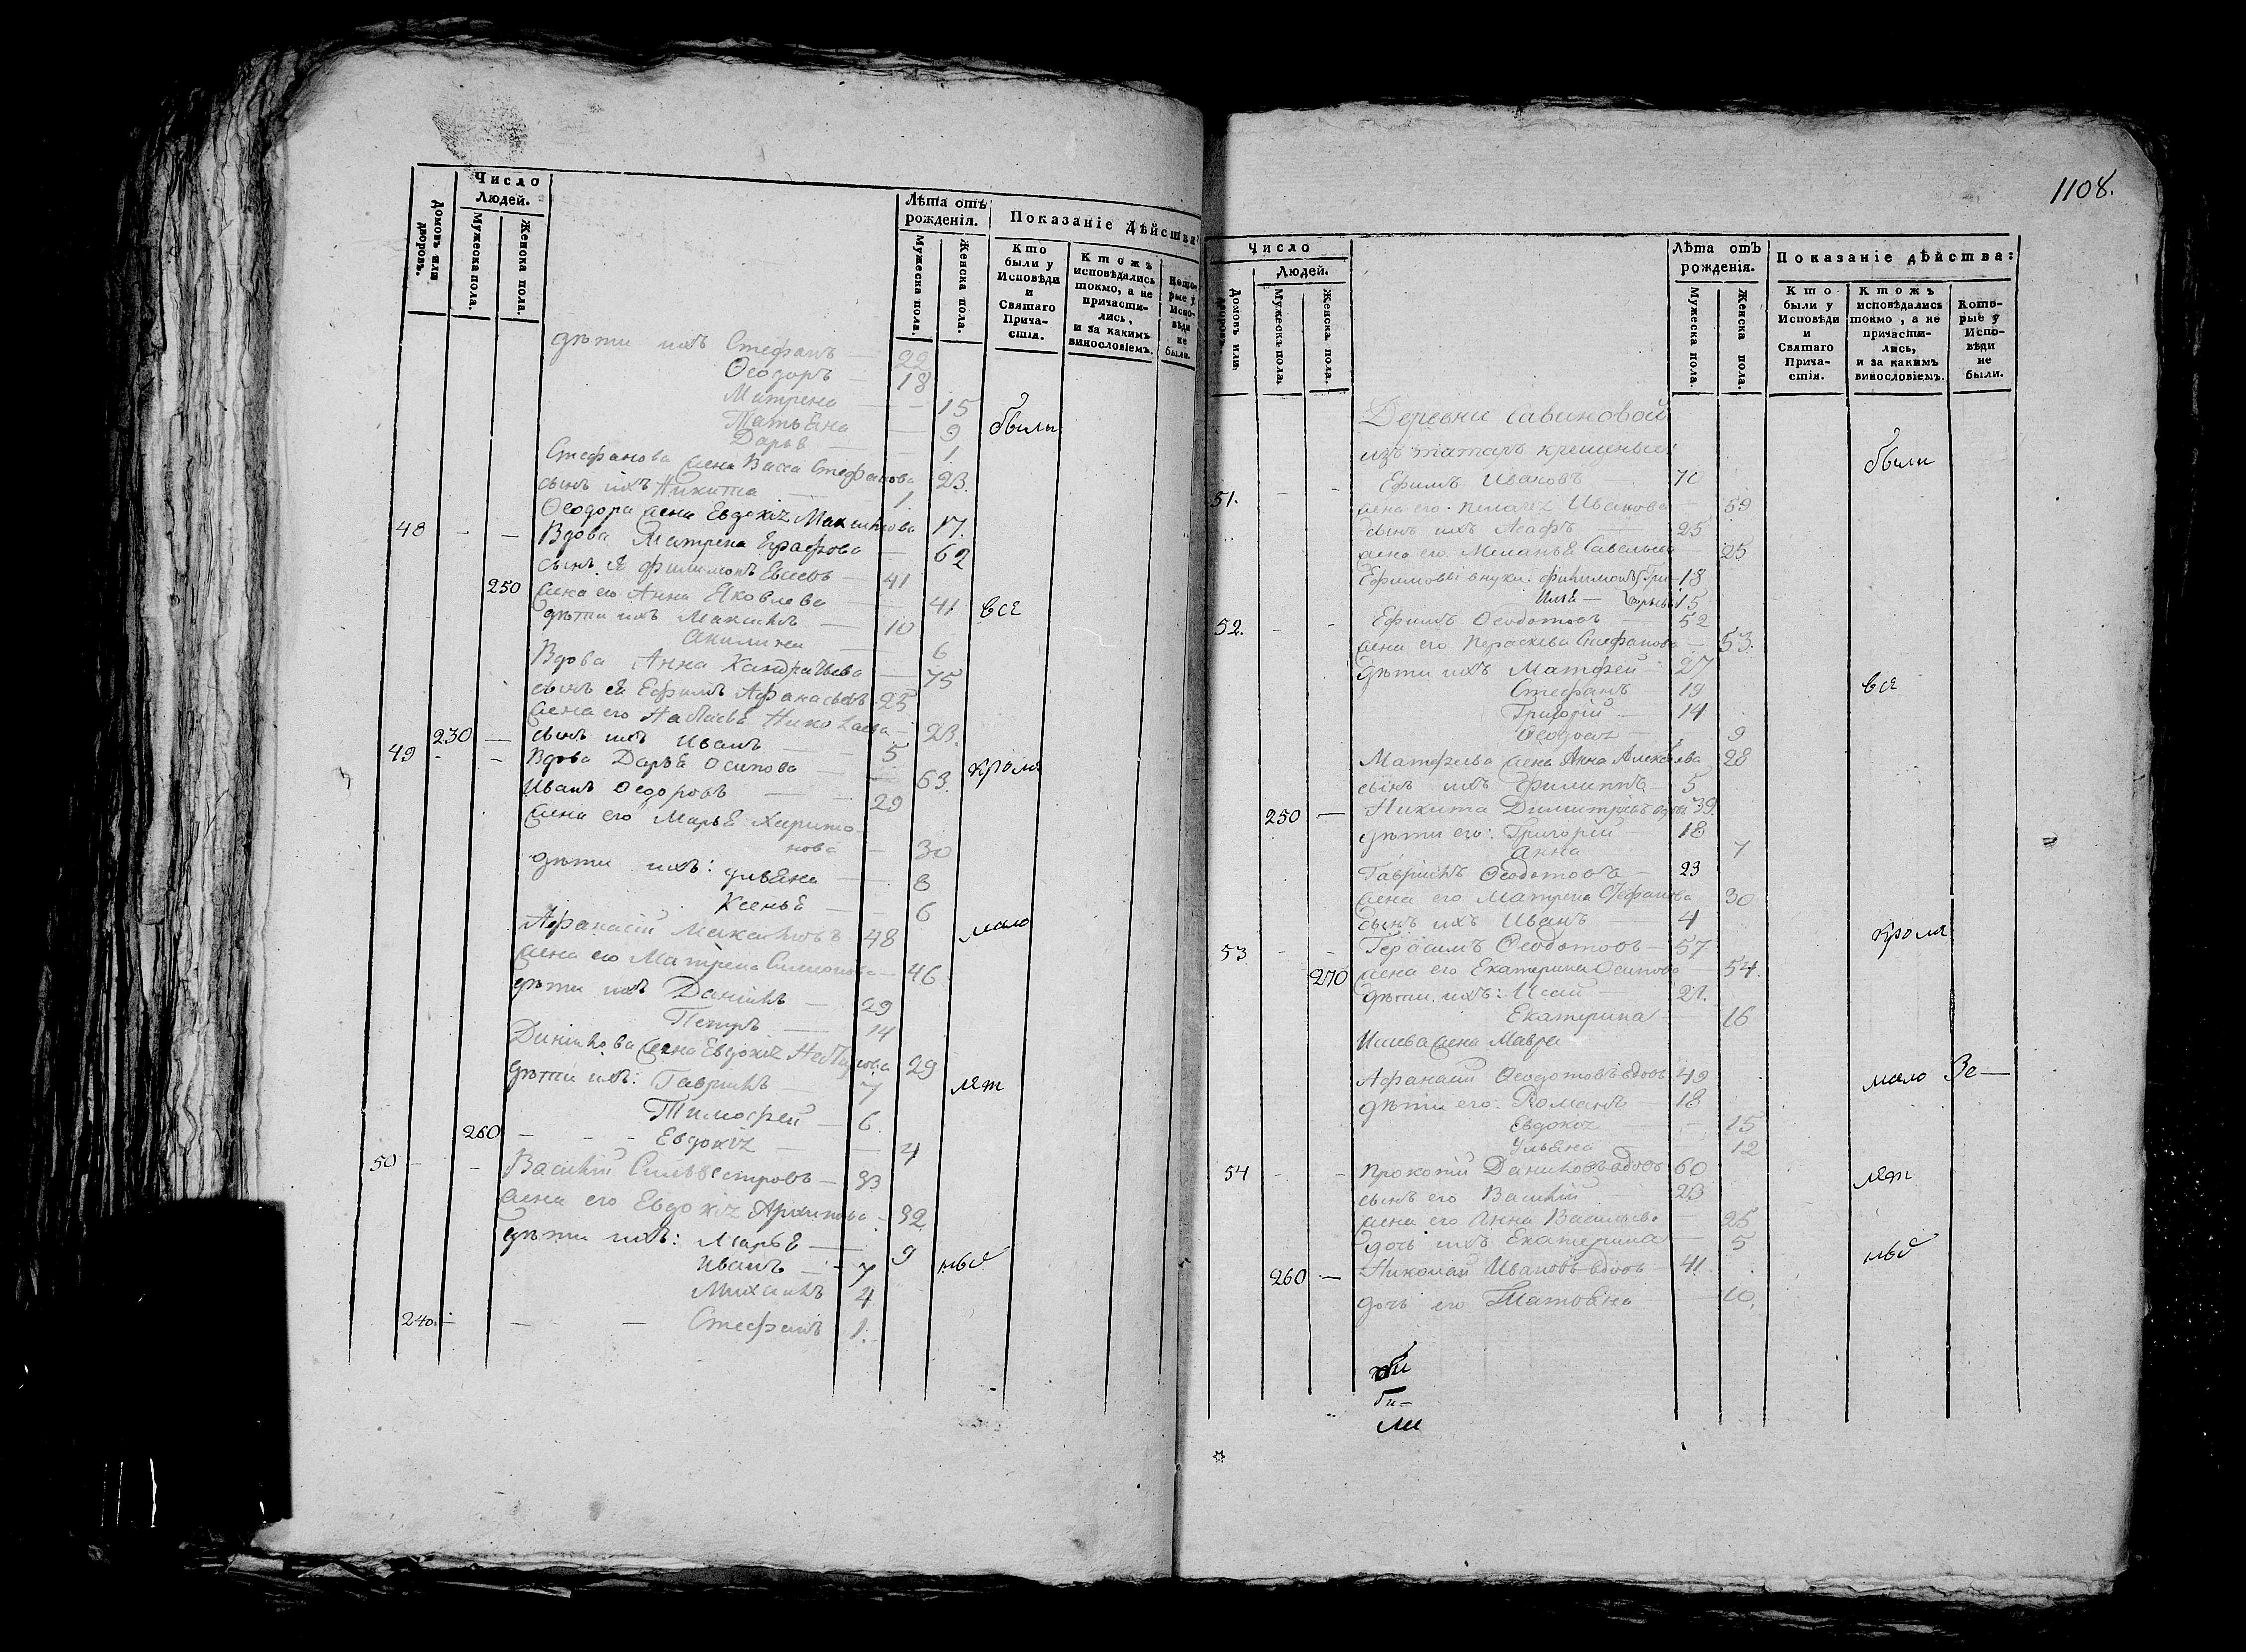 Число
Людей.
Домовъ или дворовъ.
Мужеска пола.
Женска пола.
Лѣта отъ рожденія.
Мужеска пола.
Женска пола.
Показаніе дѣйства:
Кто были у Исповѣди и Святаго Прича-стія.
Ктожъ исповѣдались токмо, а не причасти-лись, и за какимъ винословіемъ.
Кото-рые у Испо-вѣди не были.
дѣти ихъ Стефанъ — 22
Ѳеодоръ — 18
Матрена — 15
Татьяна — 9 были
Дарья — 1
Стефанова жена Васса Стефанова 23.
сынъ ихъ Никита — 1
Ѳеодора жена Евдокіѧ Максимова 17.
48 — — Вдова Матрена Еграфова — 62
сынъ ея Филимонъ Евсевъ — 41
250 жена его Анна Яковлева — 41 все
дѣти ихъ Максимъ — 10
Акилина — 6
Вдова Анна Кандратьева — 75
сынъ ея Ефимъ Афанасьевъ 25
жена его Настасья Николаева — 23.
230 — сынъ ихъ Иванъ — 5
49 - - Вдова Дарья Осипова — 63. кроме
Иванъ Ѳедоровъ — 29
жена его Марья Харито-
нова — 30
дѣти ихъ: Ульяна — 8
Ксенья — 6
Афанасій Макаровъ 48 мало
жена его Матрена Симеонова — 46
дѣти ихъ Даніилъ — 29
Петръ — 14
Даніилова жена Евдокіѧ 29
дѣти ихъ: Гавріилъ — 7 лѣт
Тимофей — 6.
260 - - - Евдокіѧ — 4
50 — - Василій Сильвестровъ — 33
жена его Евдокіѧ Архипова — 32
дѣти ихъ: Марья — 9 ныӥ
Иванъ — 7
Михаилъ 4
240. — — — Стефанъ 1.
1108.
Число
Людей.
Домовъ или дворовъ.
Мужескъ пола.
Женска пола.
Лѣта отъ рожденія.
Мужеска пола.
Женска пола.
Показаніе дѣйства:
Кто были у Исповѣди и Святаго Прича-стія.
Ктожъ исповѣдались токмо, а не причасти-лись, и за какимъ винословіемъ.
Кото-рые у Испо-вѣди не были.
Деревни Савиновой
изъ татаръ крещеныхъ были
51. - - Ефимъ Ивановъ — 70
жена его Пелагеѧ Иванова — 59
сынъ ихъ Асафъ 25
жена его Меланья Савельева — 25
Ефимовы внуки: Филимонъ Гри- 18
Илья — горьевы 15
52. - - Ефимъ Ѳеодотовъ — 52
жена его Параскева Стефанова — 53.
дѣти ихъ Матфей 27
Стефанъ 19 все
Григорій — 14
Ѳеодосіѧ — 9
Матфеева жена Анна Алексѣева 28
сынъ ихъ Филиппъ — 5
250 — Никита Димитріевъ вдовъ 39.
дѣти его: Григорій — 18
Анна 7
Гавріилъ Ѳеодотовъ — 23
жена его Матрена Стефанова 30
сынъ ихъ Иванъ — 4
53 - - Герасимъ Ѳеодотовъ — 57 кроме
270 жена его Екатерина Осипова — 54.
дѣти ихъ: Исай 21.
Екатерина — 16
Исаева жена Мавра
Афанасій Ѳеодотовъ вдовъ 49 мало
дѣти его: Романъ — 18
Евдокіѧ — 15
Ульяна — 12
54 - - Прокопій Даниловъ вдовъ 60 лѣт
сынъ его Василій — 23
жена его Анна Васильева — 25
дочь ихъ Екатерина — 5
260 — Николай Ивановъ вдовъ 41. ныӥ
дочь его Татьяна — 10.
би-
ли